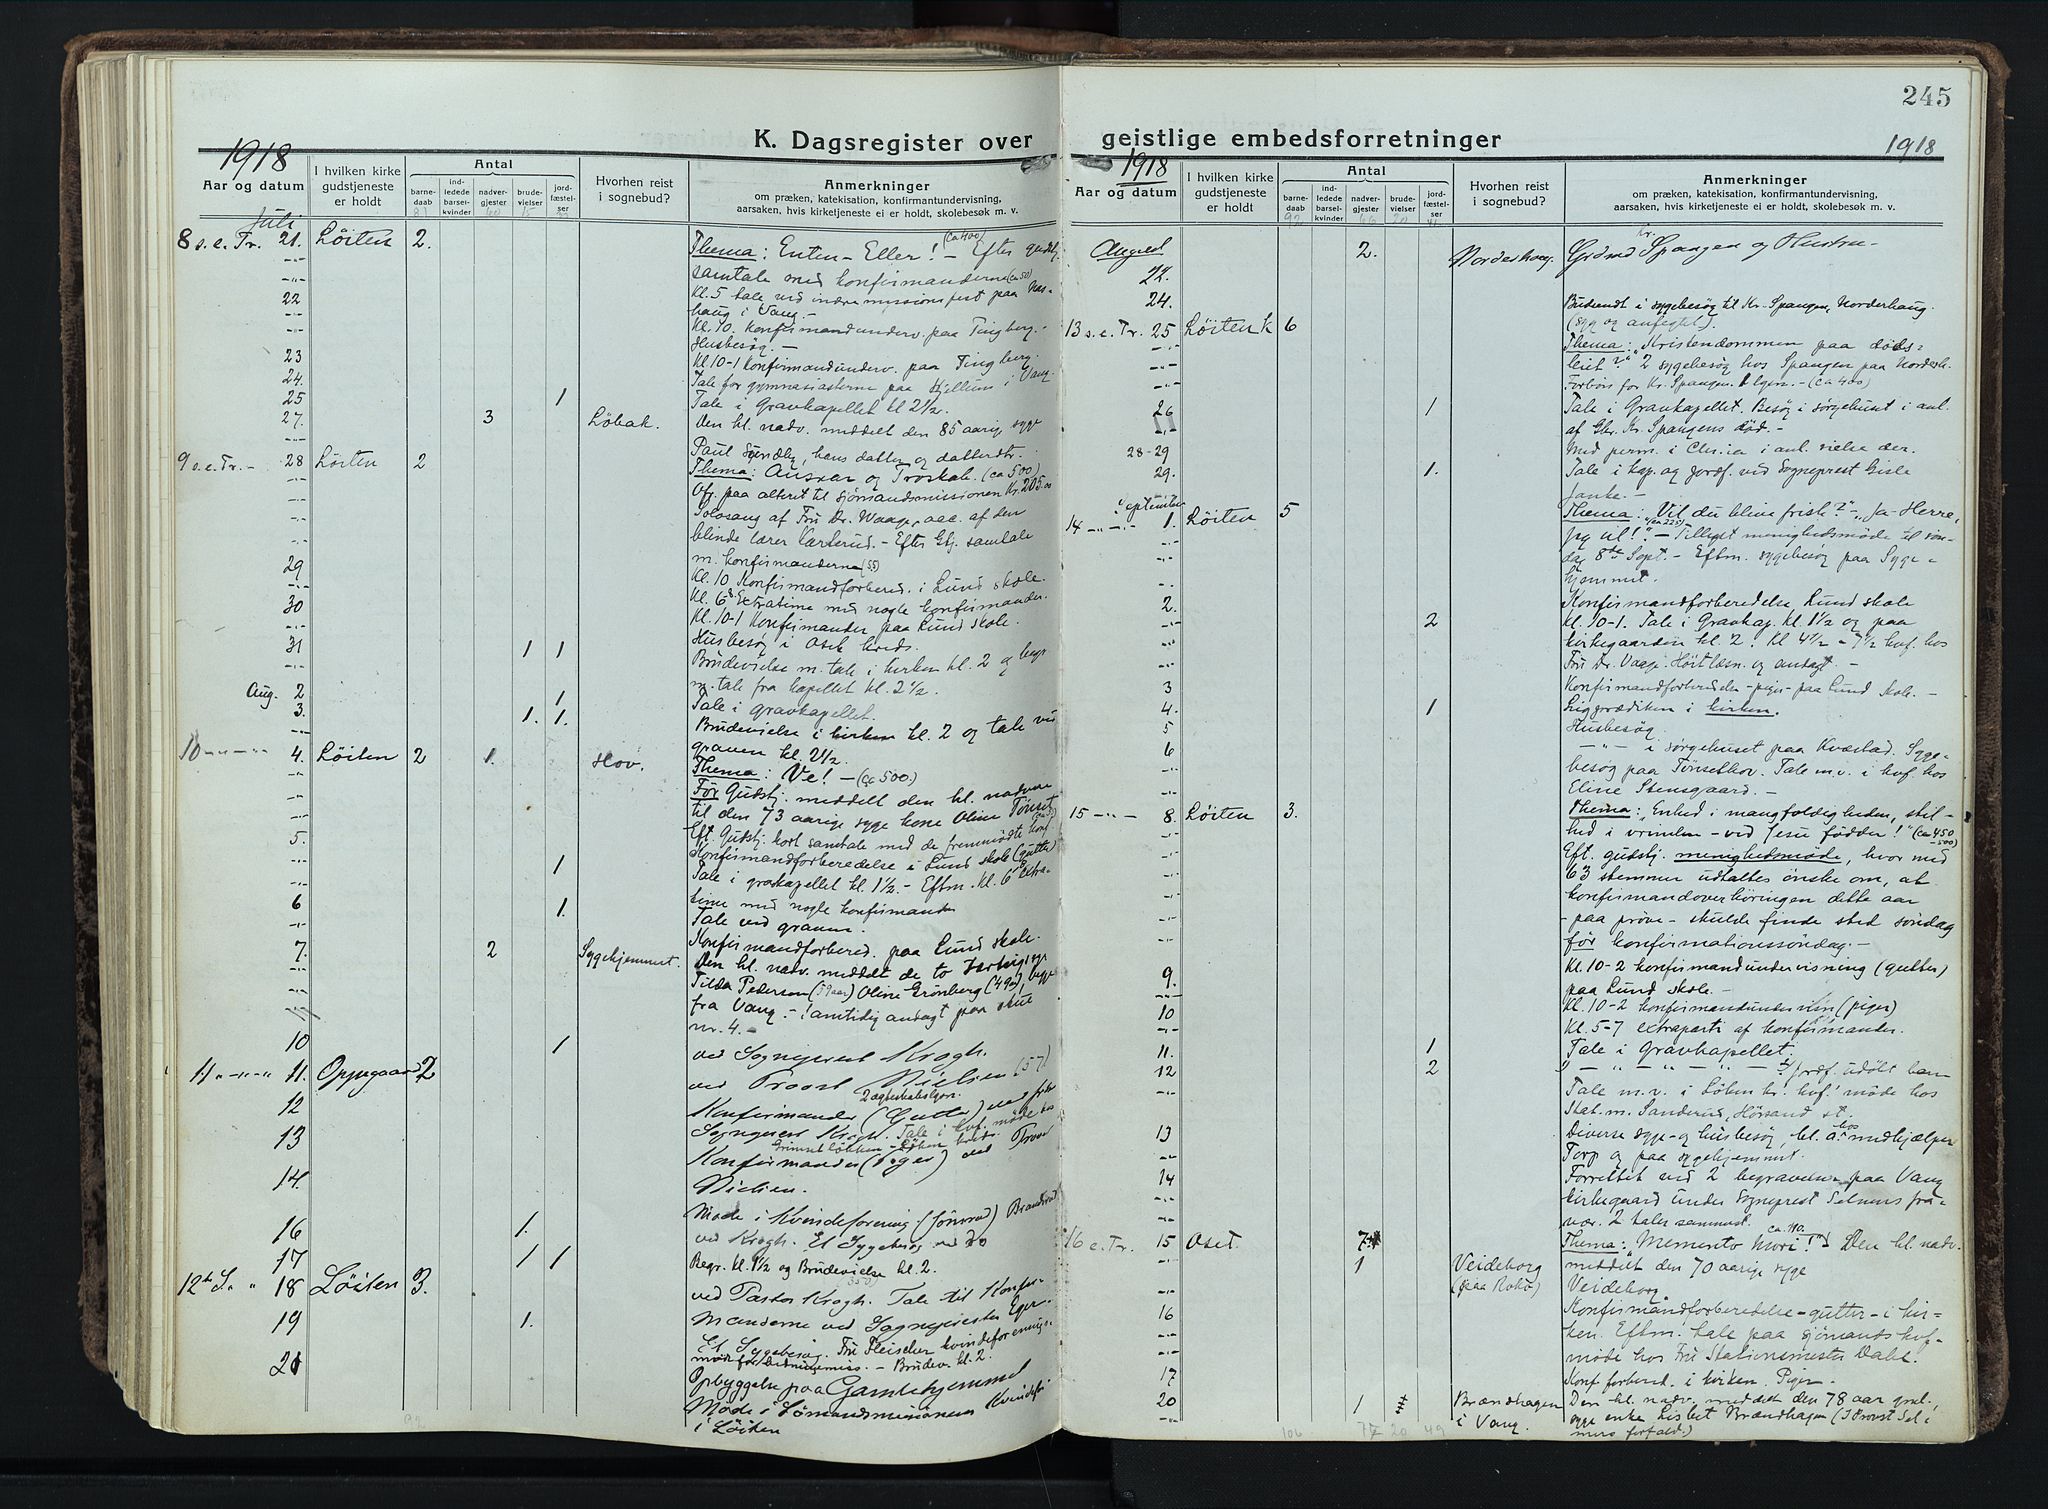 245
K. Dagsregister over
geistlige embedsforretninger
1918
1918
1918
Aar og datum
I hvilken kirke gudstjeneste er holdt
Antal
barne-daab
ind-ledede barsel-kvinder
nadver-gjester
brude-vielser
jord-fæstel-ser
Hvorhen reist i sognebud?
Anmerkninger
om præken, katekisation, konfirmantundervisning,
aarsaken, hvis kirketjeneste ei er holdt, skolebesøk m. v.
Juli
8 s.e. Tr. 21. Löiten 2. Thema: Enten-Eller! - (ca 400) Efter gudstj.
samtale med konfirmanderne (ca 50)
Kl. 5 tale ved indremissionsfest paa
haug i Vang. -
22 Kl. 10. Konfirmandunderv. paa Tingberg. -
Husbesøg -
23 Kl. 10-1 Konfirmandunderv. paa Tingberg.
24. Tale for gymnasiasterne paa Hjellum i Vang.
25 1 Tale i Gravkapellet kl 2 1/2.
27. 3 Löbak. Den hl. nadv. meddelt den 85 aarig syge
Paul Sundby, hans datter og datterdtr.
9 s.e. Tr. - 28 Löiten 2 Thema: Ansvar og Troskab. (ca 500)
Ofr. paa alteret til sjömandsmissionen Kr. 205.00
Solosang af Fru Dr. Waage, acc. af den
blinde lærer Karterud. - Efter Gtj. samtale
m. konfirmanderne (55)
29 Kl. 10 Konfirmandforbered. i Lund skole.
Kl. 6 Extratime med nogle konfirmander.
30 Kl. 10-1 Konfirmander paa Lund skole.
Husbesøg i Oset kreds.
31 1 1 Brudevielse m. tale i kirken kl. 2 og begr.
m. tale fra kapellet kl. 2 1/2.
Aug. 2 1 Tale i gravkapellet.
3. 1. 1. Brudevielse i kirken kl. 2 og tale ved
graven kl. 2 1/2.
10 4. Löiten 2 1. Hov. Thema: Ve! - (ca 500.)
For Gudstj. meddelt den hl. nadvere
til den 73 aarige syge kone Oline Tönset
Eft. Gudstj. kort samtale med de fremmødte konf.
5. Konfirmandforberedelse i Lund skole (gutter)
1 Tale i gravkapellet kl. 1 1/2. - Eftm. kl. 6 extra-
time med nogle konfirmander
6 1. Tale ved graven.
Konfirmandforbered. paa Lund skole.
7. 2 Sygehjemmet. Den hl. nadv. meddelt de to
Tilda Pedersen (59 aar) Oline Grönberg (49 a) begge
fra Vang. - Samtidig andagt paa stue
nr. 4. -
10 1 ved Sogneprest Krogh.
11 11. Oppegaard 2 ved Provst Nielsen (57)
12 Konfirmander (Gutter) ved
13 Sogneprest Krogh. Tale i kvf. møde hos
Konfirmander (Piger) ved Provst
14. Nielsen.
Møde i Kvindeforening (Jönsrud) Brandsrud
16 1. ved Krogh. Et Sygebesøg ved do
17 1 1 Begr. kl. 1 1/2 og Brudevielse kl. 2.
12te S. " 18 Löiten 3. ved Pastor Krogh. Tale til Konfir-
19 1. manderne ved Sognepresten Eger.
Et Sygebesøg. Fru Fleischer kvindeforenings-
møde for Indremiss. - Brudev. kl. 2.
21 Opbyggelse paa Gamlehjemmet
Møde i Sömandsmissionens Kvindefor
i Löiten
August 22. 2. Norderhaug. Grdmd Kr. Spangen og Hustru -
24. Budsendt i sygebesøg til Kr. Spangen, Norderhaug.
(syg og anfegtet).
13 s.e. Tr. 25 Löiten K 6 Thema: "Kristendommen paa døds-
leiet?" 2 sygebesøg hos Spangen paa Norderh.
Forbön for Kr. Spangen. - (ca 400)
26 1 Tale i Gravkapellet. Besøg i sørgehuset i anl.
af Gbr. Kr. Spangens död. -
28-29 Med perm. i Chr.ia i anl. vielse der.
29. 1. Tale i kap. og jordf. ved Sogneprest Gisle
Janke. -
September
14 1. Löiten 5 Thema: Vil du blive frisk?" - "Ja - Herre,
jeg vil!" - (ca 225) Tillyst menighedsmøde til søn-
dag 8de Sept. - Eftm. sygebesøg paa Syge-
hjemmet.
2. Konfirmandforberedelse Lund skole
2 kl. 10-1. Tale i Gravkap. kl. 1 1/2 og paa
kirkegaarden kl. 2. Kl 4 1/2 - 7 1/2 kvf. hos
Fru Dr. Vaage. Høitlæsn. og andagt. -
3 Konfirmandforberedelse - piger - paa Lund skole. -
4. 1 Ligprædiken i kirken.
5 Husbesøg
6 i sørgehuset paa Kvæstad. Syge-
besøg paa Tönsethov. Tale m.v. i kvf. hos
Eline Stensgaard. -
15 8. Löiten 3. Thema: "Enhed i mangfoldigheden, stil-
hed i vrimlen - ved Jesu fødder!" (ca 450-500)
Eft. gudstj. menighedsmøde, hvor med
63 stemmer udtaltes ønske om, at
konfirmandoverhøringen dette aar
- paa prøve - skulde finde sted søndag
før konfirmationssøndag. -
9. Kl. 10-2 konfirmandundervisning (gutter)
paa Lund skole. -
10 Kl. 10-2 konfirmandundervisn (piger)
Kl. 5-7 extraparti af konfirmander.
11. 1 Tale i Gravkapellet.
12 2 jordf. udøbt barn
Tale m.v. i Löten kr. kvf. møde hos
Stat.m. Sanderud, Hörsand st.
13 Diverse syge- og husbesøg, bl. a. hos medhjælper
Torp og paa sygehjemmet.
14 Forrettet ved 2 begravelser paa Vang
kirkegaard under sogneprest Selmers fra-
vær. 2 taler sammest.
16 e. Tr. 15 Oset. 7 Thema: "Memento Mori!" ca. 110. Den hl. nadv.
1 Veideborg (paa Rokö) meddelt den 70 aarige syge
Veideborg.
16 Konfirmandforberedelse - gutter - i kir-
ken. Eftm. tale paa sjömands kvf.
møde hos Fru Stationsmester Dahl.
17 Konf. forbered. i kirken. Piger -
20 1 Brændhagen i Vang. Den hl. nadv. meddelt den 78 aar gml.
syge enke Lisbet Brændhagen (I Provst Sel-
mers forfald.)
106 20 49